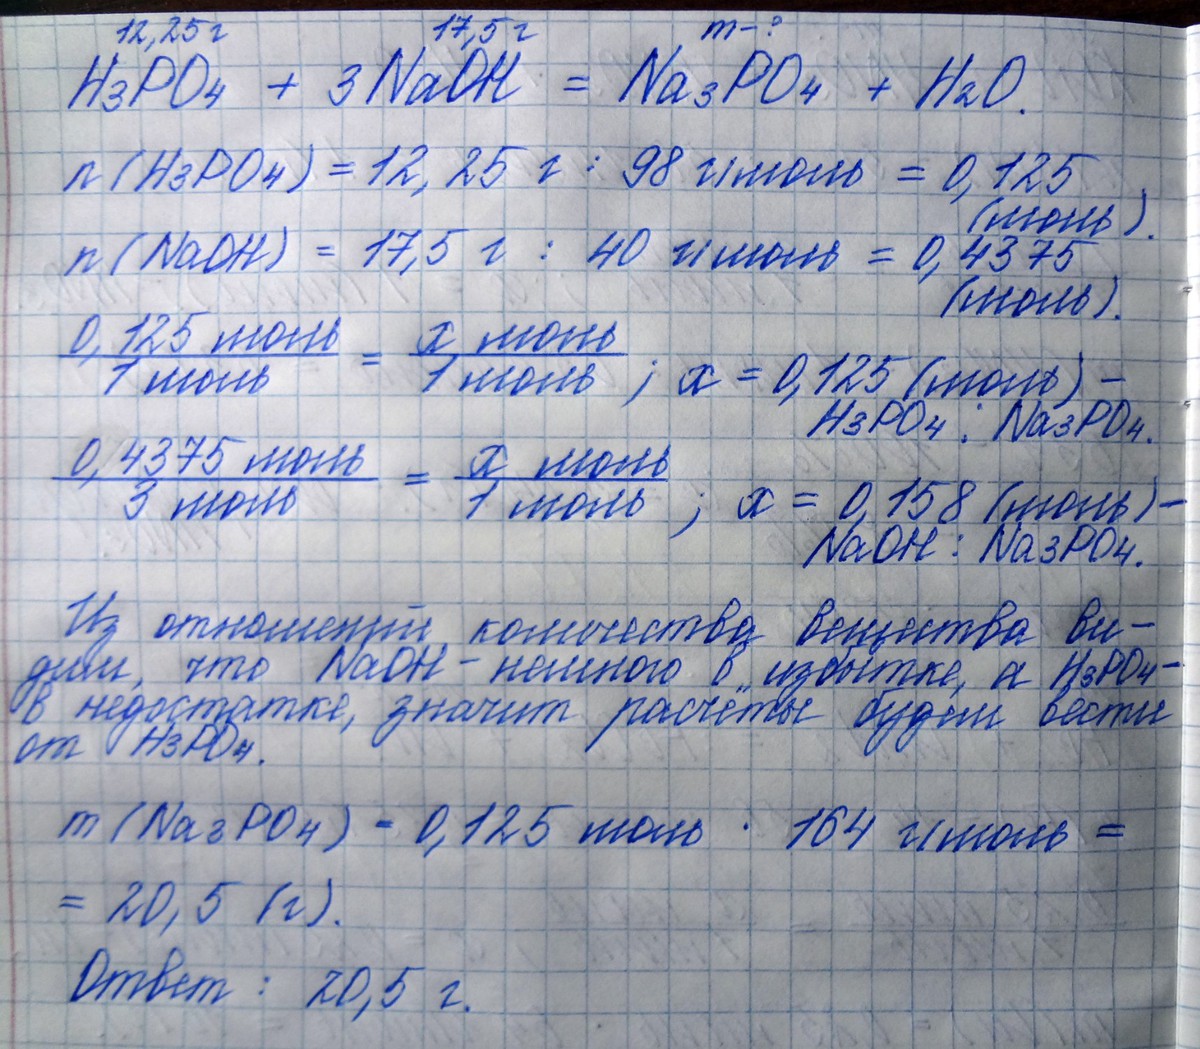 12,25 г 17,5 г m-?
H₃PO₄ + 3NaOH = Na₃PO₄ + H₂O.
n(H₃PO₄) = 12,25 г : 98 г/моль = 0,125
(моль).
n(NaOH) = 17,5 г : 40 г/моль = 0,4375
(моль).
0,125 моль / 1 моль = x моль / 1 моль ; x = 0,125 (моль) -
H₃PO₄ : Na₃PO₄.
0,4375 моль / 3 моль = x моль / 1 моль ; x = 0,158 (моль) -
NaOH : Na₃PO₄.
Из отношений количества вещества ви-
дим, что NaOH - немного в избытке, а H₃PO₄ -
в недостатке, значит расчёты будем вести
от H₃PO₄.
m(Na₃PO₄) = 0,125 моль · 164 г/моль =
= 20,5 (г).
Ответ : 20,5 г.